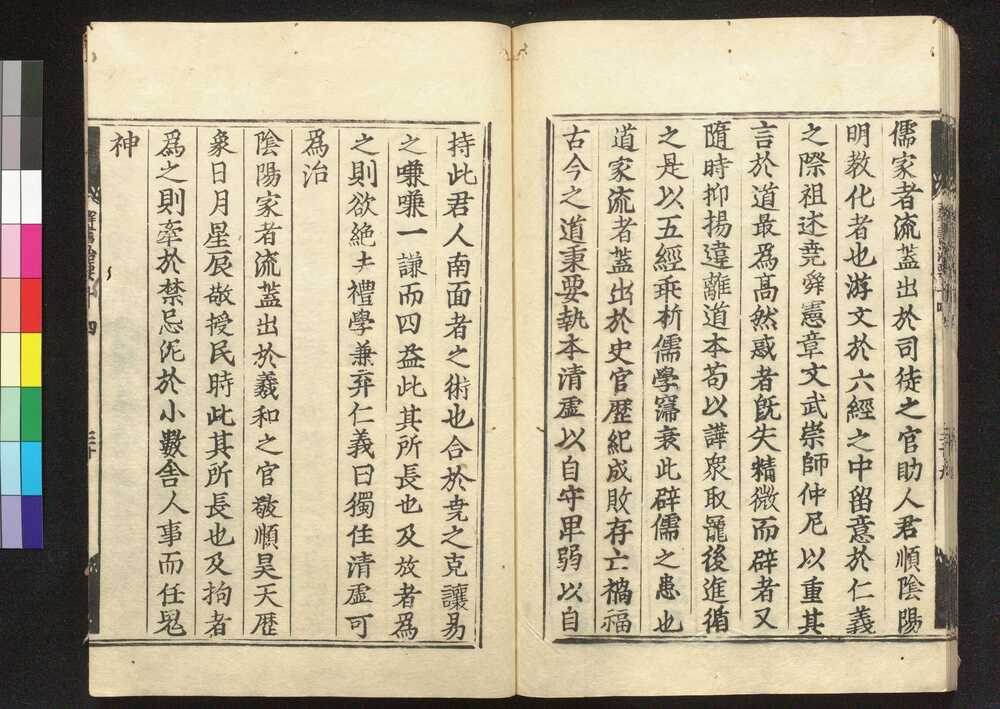 儒家者流蓋出於司徒之官助人君順陰陽
明教化者也游文於六經之中留意於仁義
之際祖述堯舜憲章文武崇師仲尼以重其
言於道最爲高然惑者旣失精微而辟者又
隨時抑揚違離道本苟以譁衆取寵後進循
之是以五經乖析儒學寖衰此辟儒之患也
道家流者蓋出於史官歷紀成敗存亡禍福
古今之道秉要執本清虛以自守卑弱以自
持此君人南面者之術也合於堯之克讓易
之嗛嗛一謙而四益此其所長也及放者爲
之則欲絶去禮學兼弃仁義曰獨任清虛可
爲治
陰陽家者流蓋出於羲和之官敬順昊天歷
象日月星辰敬授民時此其所長也及拘者
爲之則牽於禁忌泥於小數舎人事而任鬼
神